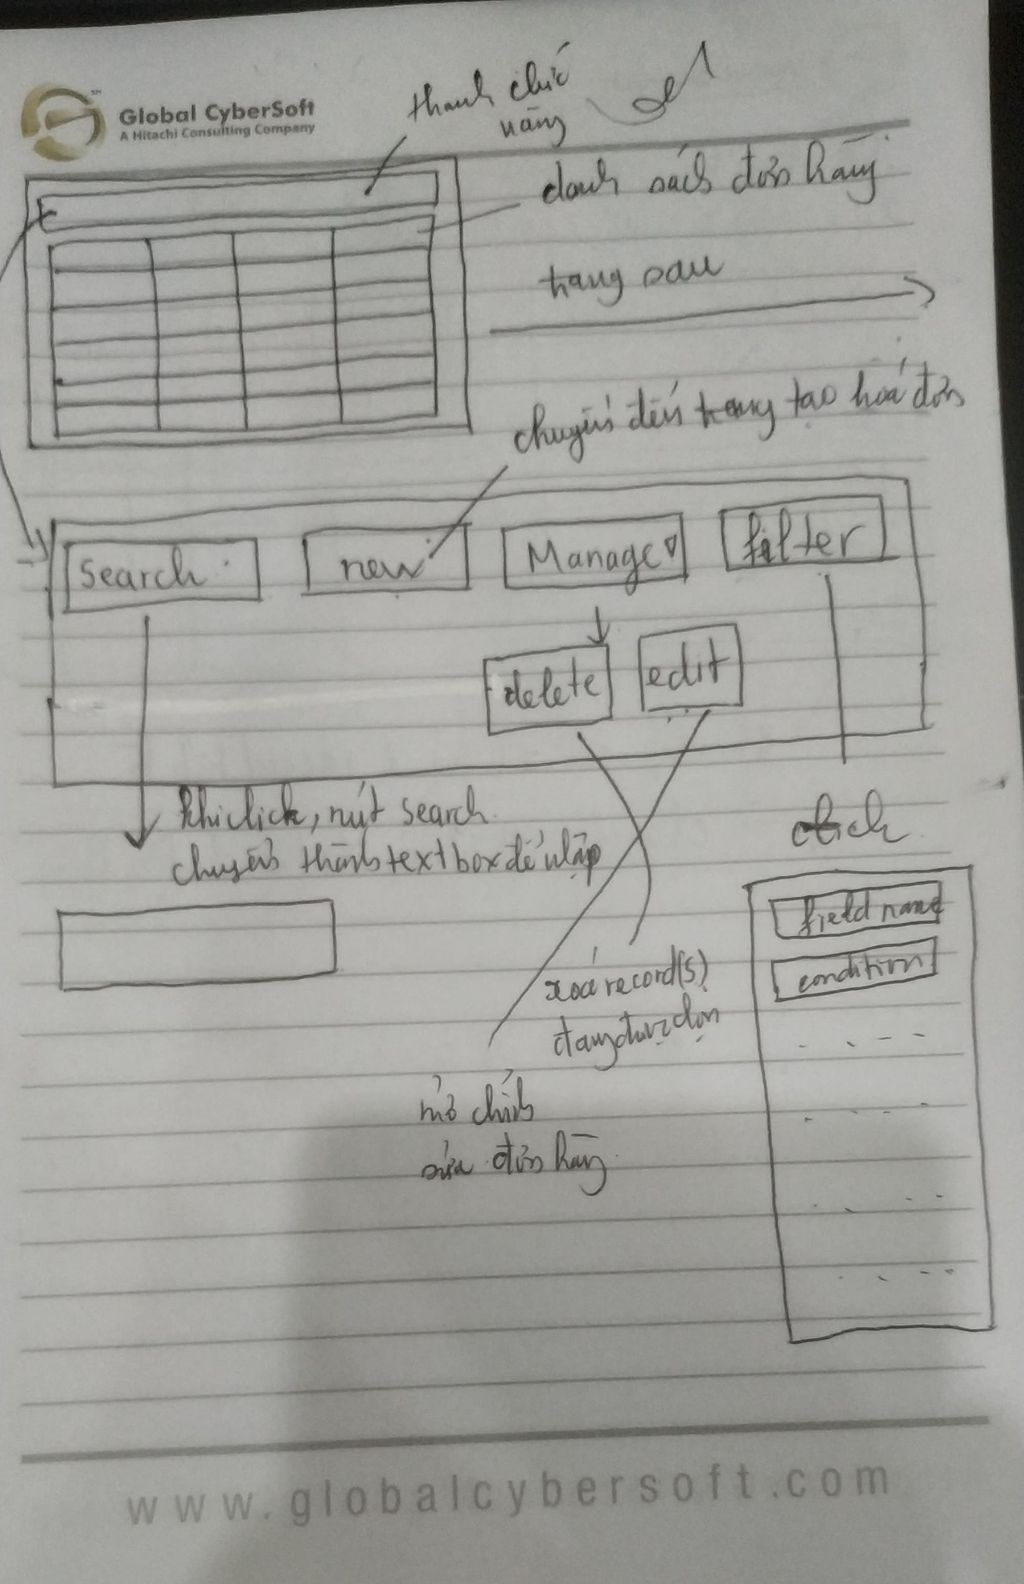 Global CyberSoft
A Hitachi Consulting Company
thanh chức
năng
danh sách đơn hàng
trang sau
chuyển đến trang tạo hoá đơn
search
new
Manage
filter
delete
edit
khi click, nút search
chuyển thành textbox để nhập
click
field name
condition
xoá record(s)
đang được chọn
mở chỉnh
sửa đơn hàng
www.globalcybersoft.com